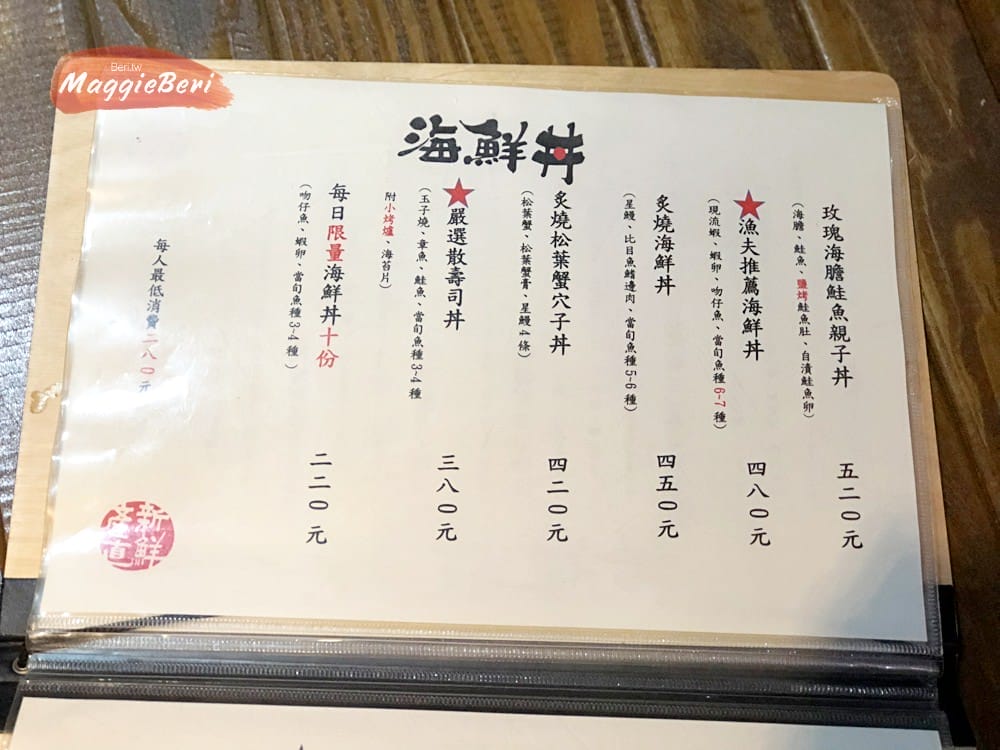 Beri.tw
MaggieBeri
海鮮丼
玫瑰海膽鮭魚親子丼
(海膽、鮭魚、鹽烤鮭魚肚、自漬鮭魚卵)
五二〇元
★漁夫推薦海鮮丼
(現流蝦、蝦卵、吻仔魚、當旬魚種6~7種)
四八〇元
炙燒海鮮丼
(星鰻、比目魚鰭邊肉、當旬魚種5~6種)
四五〇元
炙燒松葉蟹穴子丼
(松葉蟹、松葉蟹膏、星鰻4條)
四二〇元
★嚴選散壽司丼
(玉子燒、章魚、鮭魚、當旬魚種3~4種
附小烤爐、海苔片)
三八〇元
每日限量海鮮丼十份
(吻仔魚、蝦卵、當旬魚種3~4種)
二二〇元
每人最低消費二八〇元
新鮮
產直